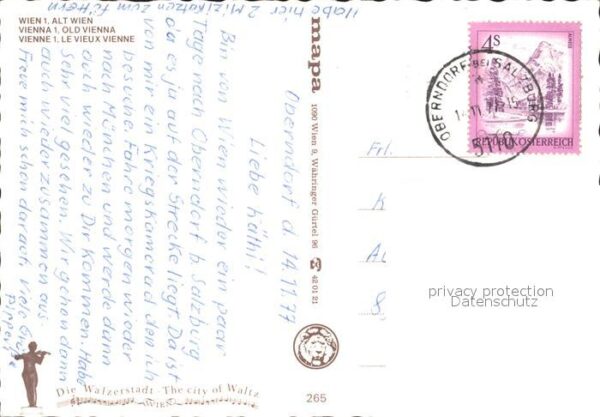 WIEN 1, ALT WIEN
VIENNA 1, OLD VIENNA
VIENNE 1, LE VIEUX VIENNE
Habe hier 2 Mizikatzen zum füttern
Oberndorf d. 14.11.77
Liebe Käthi!
Bin von Wien wieder ein paar
Tage nach Oberndorf b. Salzburg
da es ja auf der Strecke liegt. Da ist
von mir ein Kriegskamerad den ich
besuche. Fahre morgen wieder
nach München und werde dann
auch wieder zu Dir kommen. Habe
sehr viel gesehen. Wir gehen dann
auch wieder zusammen aus
Freue mich schon darauf. Viele Grüße
mapa
1090 Wien 9, Währinger Gürtel 96 ☎ 42 01 21
4S
REPUBLIK ÖSTERREICH
OBERNDORF BEI SALZBURG
5110
Frl.
K
privacy protection
Datenschutz
Die Walzerstadt · The city of Waltz
WIEN
265